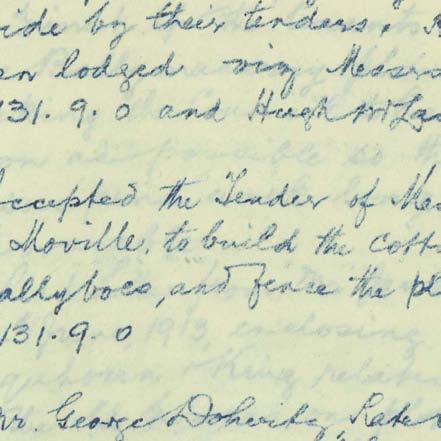 ide by their tenders.
en lodged viz Messrs
131.9.0 and Hugh McLa
ccepted the Tender of Mes
Moville, to build the cott
allyboes, and fence the pl
131.9.0
Mr. George Doherty, Rate